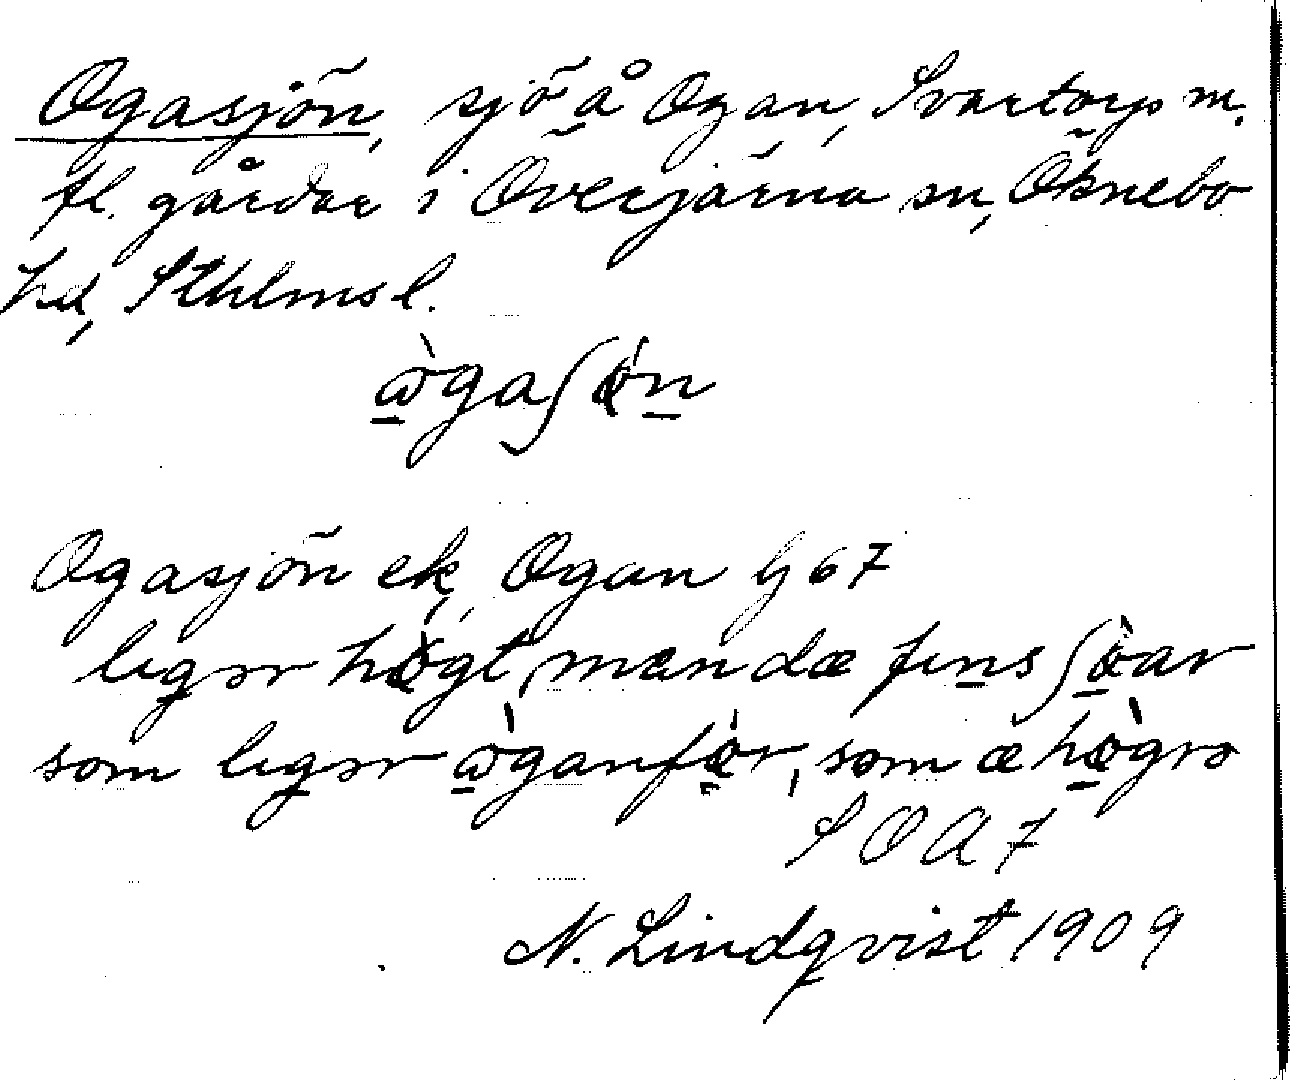 Ogasjön, sjö å Ogan, Svartorps m.
fl. gårdar i Överjärna sn, Öknebo
hd, Sthlms l.
ògaʃǿn
Ogasjön ek, Ogan Gs 67
ligər høgt, men dæ fins ʃøar
som ligər òganför, som æ høgrə
SOA 7
N. Lindqvist 1909